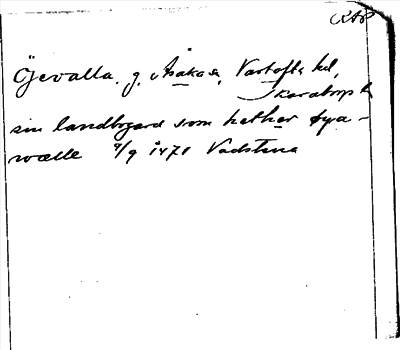 RAP
Öjevalla, g. Åsaka sn, Vartofta hd,
Skarabrgs l.
sin landbogard som hether øya-
wælle 9/9 1470 Vadstena